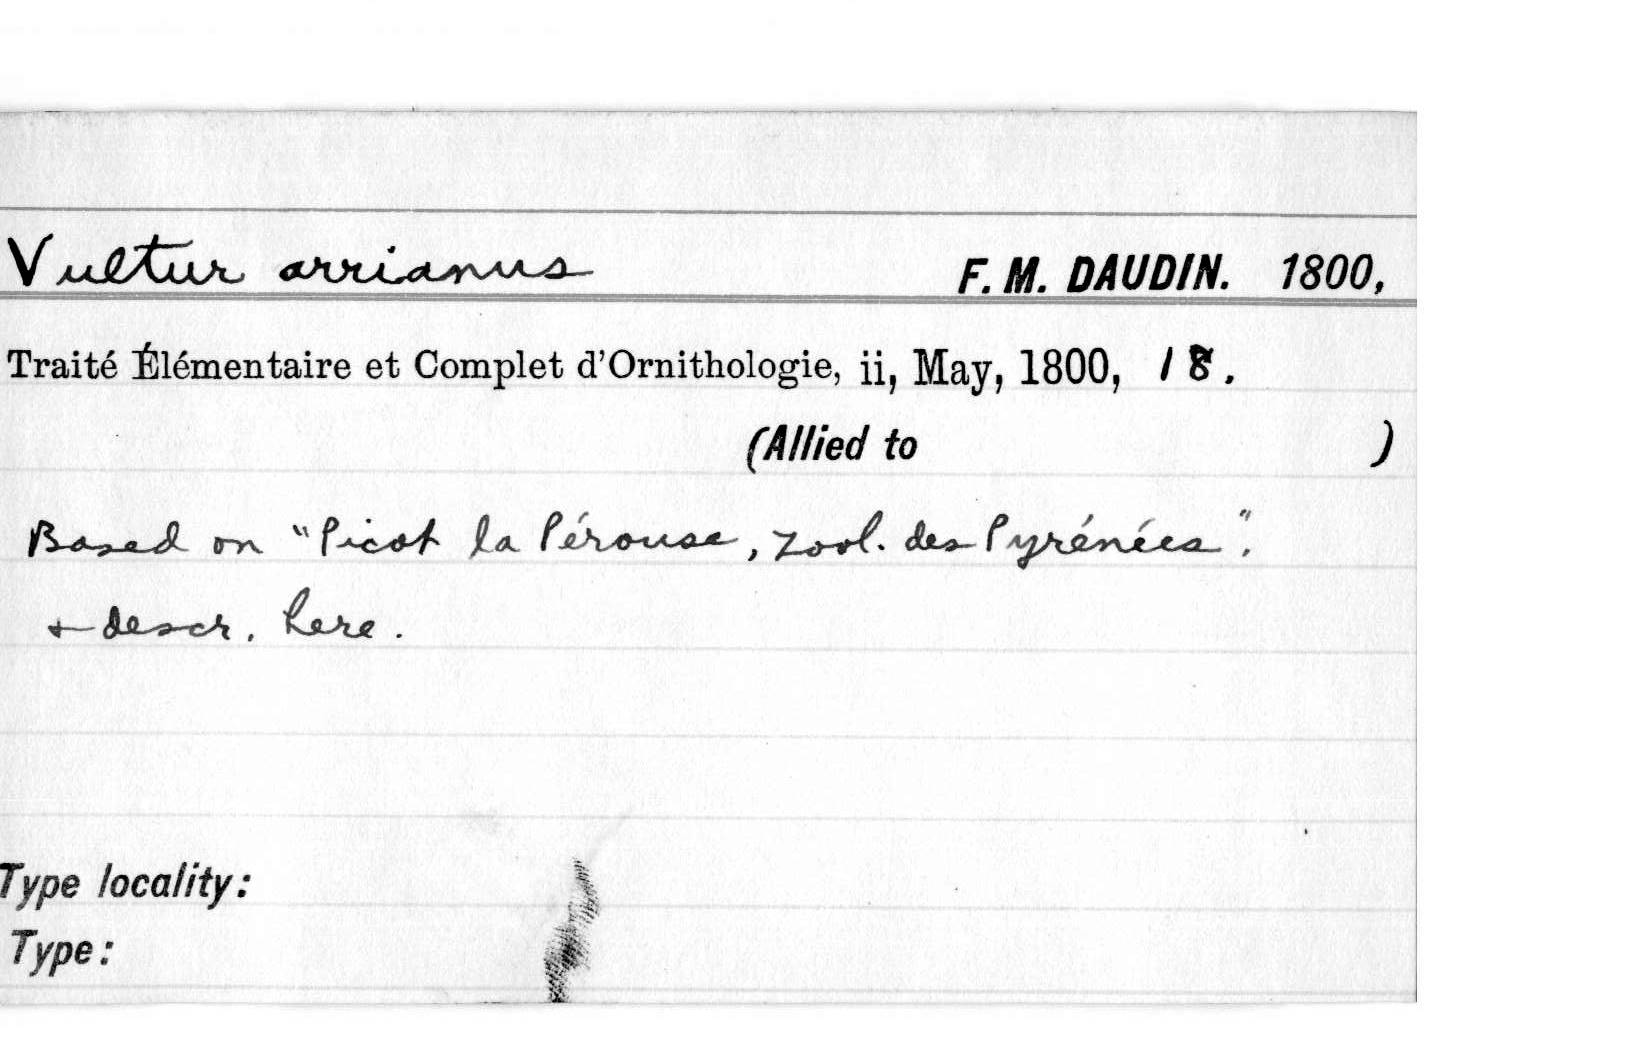 Vultur arrianus F. M. DAUDIN. 1800,
Traité Élémentaire et Complet d'Ornithologie, ii, May, 1800, 18.
(Allied to )
Based on "Picot la Pérouse, Zool. des Pyrénées".
+ descr. here.
Type locality:
Type: